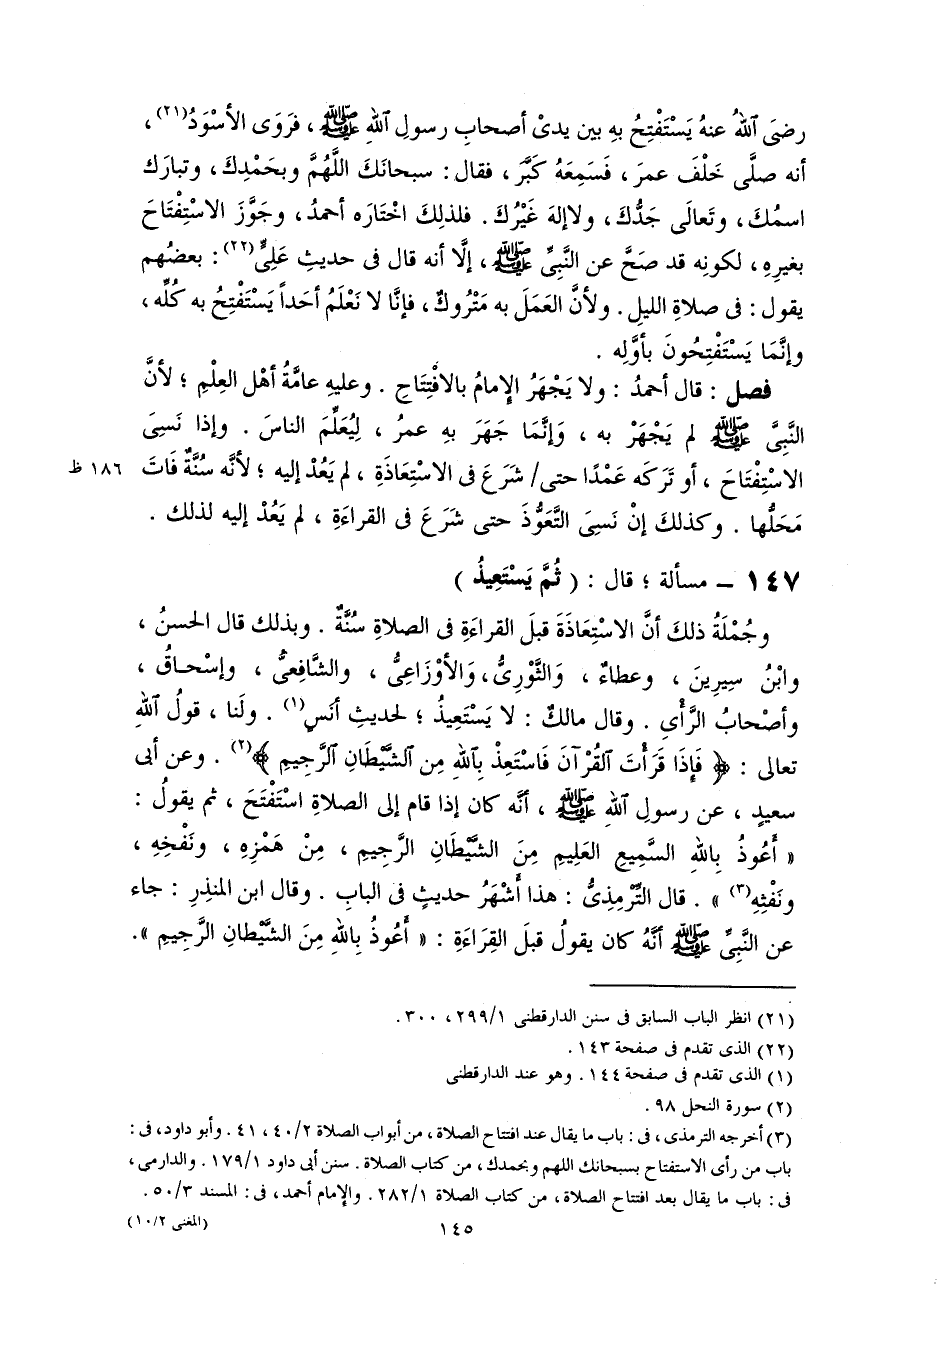 رضىَ ٱللهُ عنهُ يَسْتَفْتِحُ بِهِ بين يدىْ أصحابِ رسولِ ٱللهِ ﷺ ، فرَوَى الأسْوَدُ(٢١) ،
أنه صلَّى خَلْفَ عمرَ ، فَسَمِعَهُ كَبَّرَ ، فقال : سبحانَكَ اللَّهُمَّ وبحَمْدِكَ ، وتبارَك
اسمُكَ ، وتَعالَى جَدُّكَ ، ولاإلهَ غَيْرُكَ . فلذلِكَ اخْتَارَه أحمدُ ، وجَوَّزَ الاسْتِفْتَاحَ
بغيرِهِ ، لكونِه قد صَحَّ عن النَّبِىِّ ﷺ ، إلَّا أنه قال فى حديثِ عَلِىٍّ(٢٢) : بعضُهم
يقول : فى صلاةِ الليلِ . ولأنَّ العَمَلَ به مَتْروكٌ ، فإنَّا لا نَعْلَمُ أحَداً يَسْتَفْتِحُ به كُلِّه ،
وإنَّمَا يَسْتَفْتِحُونَ بأوَّلِه .
فصل : قال أحمدُ : ولا يَجْهَرُ الإمامُ بالافْتِتَاحِ . وعليهِ عامَّةُ أهْلِ العِلْمِ ؛ لأنَّ
النَّبِىَّ ﷺ لم يَجْهَرْ به ، وَإنَّمَا جَهَر بهِ عمرُ ، لِيُعَلِّمَ الناسَ . وإذا نَسِىَ
الاسْتِفْتَاحَ ، أو تَرَكَه عَمْدًا حتى/ شَرَعَ فى الاسْتِعَاذَةِ ، لم يَعُدْ إليه ؛ لأنَّه سُنَّةٌ فَاتَ ١٨٦ ظ
مَحَلُّها . وكذلكَ إنْ نَسِىَ التَّعَوُّذَ حتى شَرَعَ فى القراءَةِ ، لم يَعُدْ إليه لذلك .
١٤٧ – مسألة ؛ قال : ( ثُمَّ يَسْتَعِيذُ )
وجُمْلَةُ ذلك أنَّ الاسْتِعَاذَةَ قبلَ القراءَةِ فى الصلاةِ سُنَّةٌ . وبذلك قال الحسنُ ،
وابْنُ سِيرِينَ ، وعطاءٌ ، وَالثَّوْرِىُّ، وَالأوْزَاعِىُّ ، والشَّافِعىُّ ، وإسْحاقُ ،
وأصْحابُ الرَّأْىِ . وقال مالكٌ : لا يَسْتَعِيذُ ؛ لحديثِ أنَسٍ(١) . ولَنا ، قولُ ٱللهِ
تعالى : ﴿ فَإِذَا قَرَأْتَ ٱلقُرْآنَ فَاسْتَعِذْ بِٱللهِ مِن ٱلشَّيْطَانِ ٱلرَّجِيمِ ﴾(٢) . وعن أبى
سعيدٍ ، عن رسولِ ٱللهِ ﷺ ، أنَّه كان إذا قام إلى الصلاةِ اسْتَفْتَحَ ، ثم يقولُ :
« أَعُوذُ بِاللهِ السَّمِيعِ العَلِيمِ مِنَ الشَّيْطَانِ الرَّجِيمِ ، مِنْ هَمْزِهِ ، ونَفْخِهِ ،
ونَفْثِهِ(٣) » . قال التِّرْمِذِىُّ : هذا أَشْهَرُ حديثٍ فى البابِ . وقال ابن المنذِرِ : جاء
عن النَّبِىِّ ﷺ أنَّهُ كان يقولُ قبلَ القِرَاءَةِ : « أَعُوذُ بِاللهِ مِنَ الشَّيْطانِ الرَّجِيمِ ».
(٢١) انظر الباب السابق فى سنن الدارقطنى ٢٩٩/١ ، ٣٠٠ .
(٢٢) الذى تقدم فى صفحة ١٤٣ .
(١) الذى تقدم فى صفحة ١٤٤ . وهو عند الدارقطنى
(٢) سورة النحل ٩٨ .
(٣) أخرجه الترمذى ، فى : باب ما يقال عند افتتاح الصلاة ، من أبواب الصلاة ٤٠/٢ ، ٤١ . وأبو داود ، فى :
باب من رأى الاستفتاح بسبحانك اللهم وبحمدك ، من كتاب الصلاة . سنن أبى داود ١٧٩/١ . والدارمى ،
فى : باب ما يقال بعد افتتاح الصلاة ، من كتاب الصلاة ٢٨٢/١ . والإمام أحمد ، فى : المسند ٥٠/٣ .
١٤٥
(المغنى ١٠/٢)